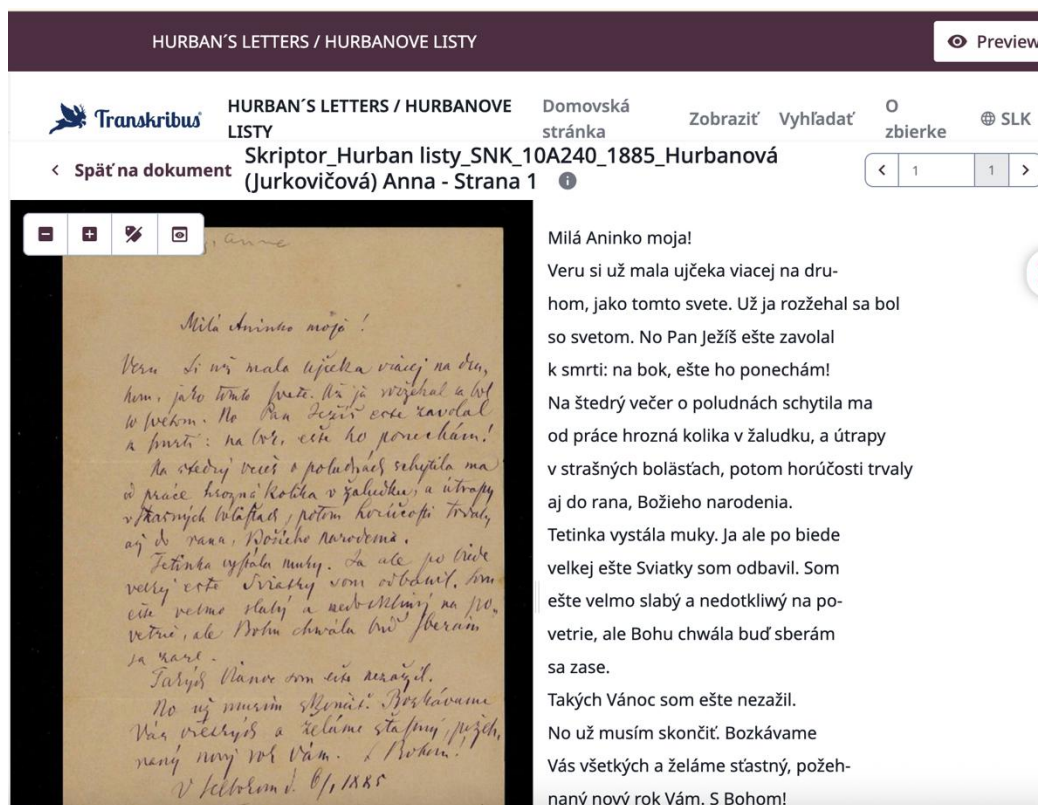 HURBAN´S LETTERS / HURBANOVE LISTY
Preview
Transkribus
HURBAN´S LETTERS / HURBANOVE
LISTY
Domovská
stránka
Zobraziť
Vyhľadať
O
zbierke
SLK
Späť na dokument
Skriptor_Hurban listy_SNK_10A240_1885_Hurbanová
(Jurkovičová) Anna - Strana 1
1
1
Anna
Milá Aninko mojá!
Veru si už mala ujčeka viacej na dru-
hom, jako tomto svete. Už ja rozžehal sa bol
so svetom. No Pan Ježíš ešte zavolal
k smrti: na bok, ešte ho ponechám!
Na štedrý večer o poludnách schytila ma
od práce hrozná kolika v žaludku, a útrapy
v strašných bolásťach, potom horúčosti trvaly
aj do rana, Božieho narodenia.
Tetinka vystála muky. Ja ale po biede
velkej ešte Sviatky som odbavil. Som
ešte velmo slabý a nedotkliwý na po-
vetrie, ale Bohu chwála buď sberám
sa zase.
Takých Vánoc som ešte nezažil.
No už musím skončiť. Bozkávame
Vás všetkých a želáme sťastný, požeh-
naný nový rok Vám. S Bohom!
V Hlbokom d. 6/1 1885
Milá Aninko moja!
Veru si už mala ujčeka viacej na dru-
hom, jako tomto svete. Už ja rozžehal sa bol
so svetom. No Pan Ježíš ešte zavolal
k smrti: na bok, ešte ho ponechám!
Na štedrý večer o poludnách schytila ma
od práce hrozná kolika v žaludku, a útrapy
v strašných bolásťach, potom horúčosti trvaly
aj do rana, Božieho narodenia.
Tetinka vystála muky. Ja ale po biede
velkej ešte Sviatky som odbavil. Som
ešte velmo slabý a nedotkliwý na po-
vetrie, ale Bohu chwála buď sberám
sa zase.
Takých Vánoc som ešte nezažil.
No už musím skončiť. Bozkávame
Vás všetkých a želáme sťastný, požeh-
naný nový rok Vám. S Bohom!